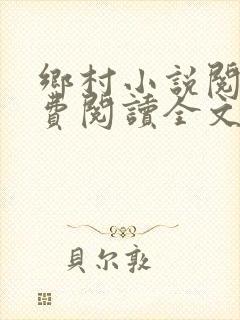 鄉村小說閱
費閱讀全文
貝尔敦